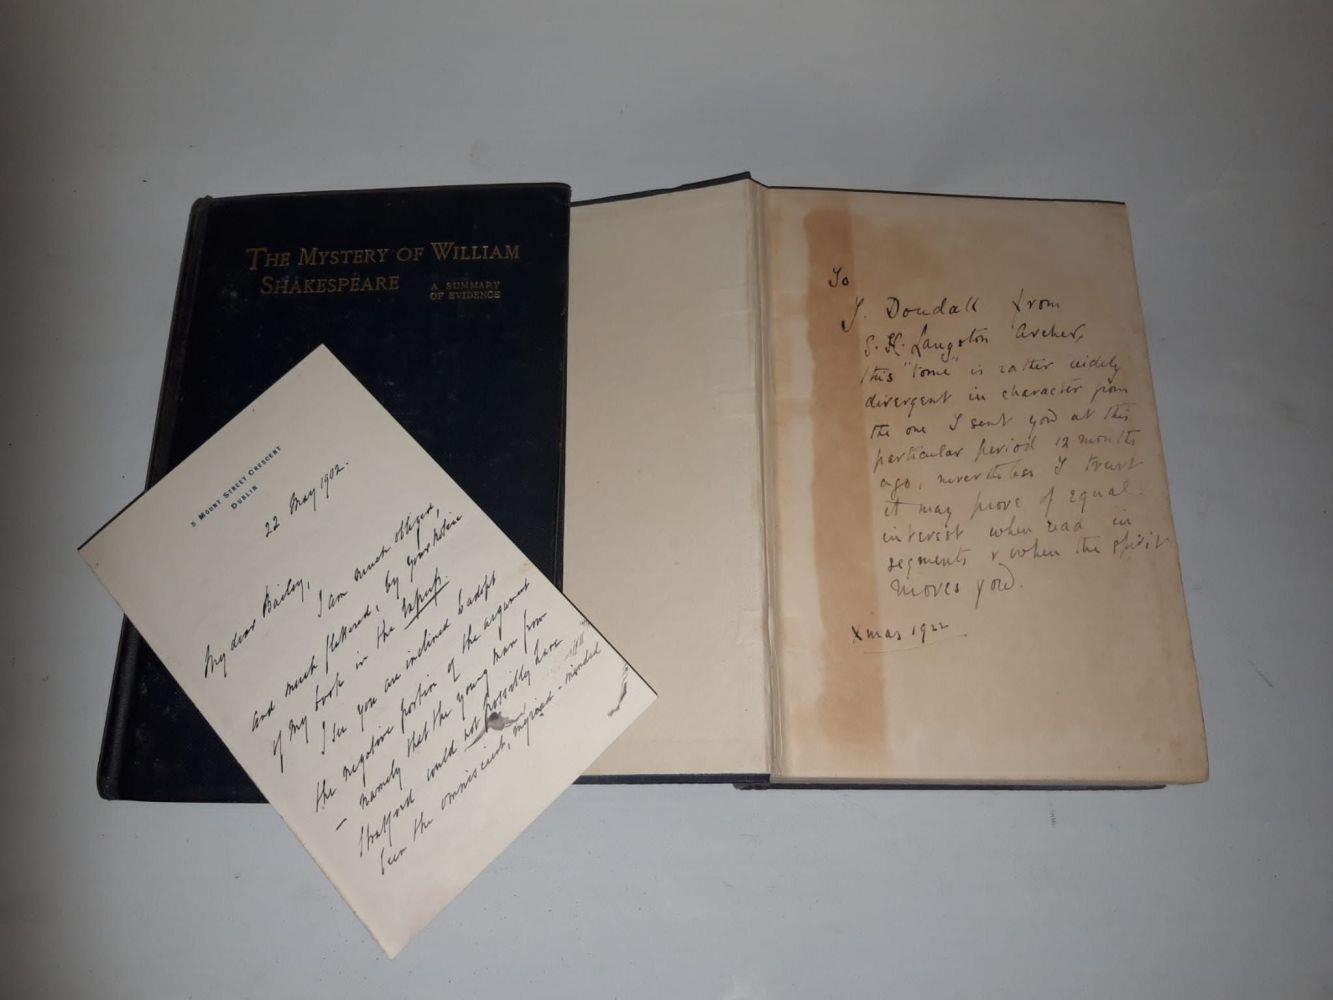 THE MYSTERY OF WILLIAM
SHAKESPEARE
A SUMMARY
OF EVIDENCE
5 MOUNT STREET CRESCENT
DUBLIN
22 May 1902.
My dear Bailey,
I am much obliged,
and much flattered, by your notice
of my book in the
I see you are inclined to adopt
the negative portion of the argument
– namely that the young man from
Stratford could not possibly have
been the omniscient, myriad-minded
To
J. Dondall from
S. H. Langston Archer,
this "tome" is rather widely
divergent in character from
the one I sent you at this
particular period 12 months
ago, nevertheless I trust
it may prove of equal
interest when read in
segments & when the spirit
moves you.
Xmas 1922